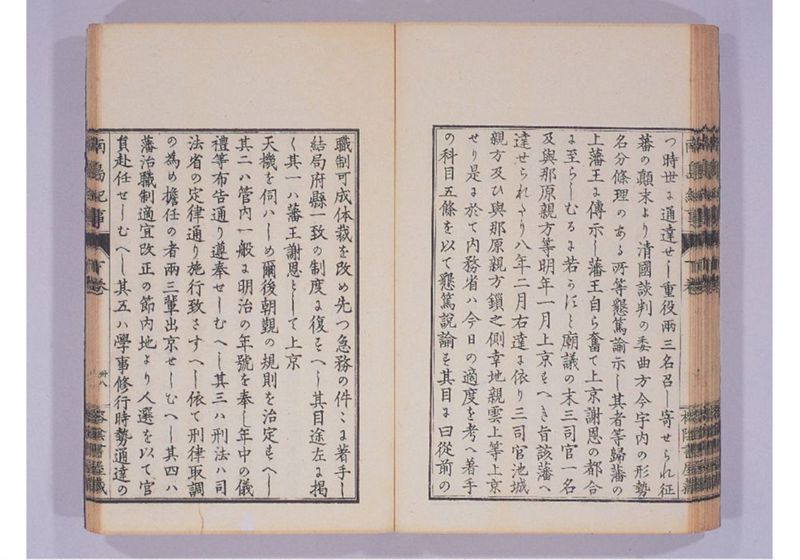 つ時世に通達せし重役兩三名召し寄せられ征
蕃の顛末より清國談判の委曲方今宇内の形勢
名分條理のある所等懇篤諭示し其者等歸藩の
上藩王に傳示し藩王自ら奮て上京謝恩の都合
に至らしむるに若かすと廟議の末三司官一名
及與那原親方等明年一月上京すへき旨該藩へ
達せられたり八年二月右達に依り三司官池城
親方及ひ與那原親方鎖之側幸地親雲上等上京
せり是に於て内務省ハ今日の適度を考へ着手
の科目五條を以て懇篤説諭す其目に曰從前の
南島紀事
下巻
職制可成体裁を改め先つ急務の件に着手し
結局府縣一致の制度に復すへし其目途左に掲
く其一ハ藩王謝恩として上京
天機を伺ハしめ爾後朝覲の規則を治定すへし
其二ハ管内一般に明治の年號を奉し年中の儀
禮等布告通り遵奉せしむへし其三ハ刑法ハ司
法省の定律通り施行致さすへし依て刑律取調
の為め擔任の者兩三輩出京せしむへし其四ハ
藩治職制適宜改正の節内地より人選を以て官
員赴任せしむへし其五ハ學事修行時勢通達の
南島紀事
下巻
卅八